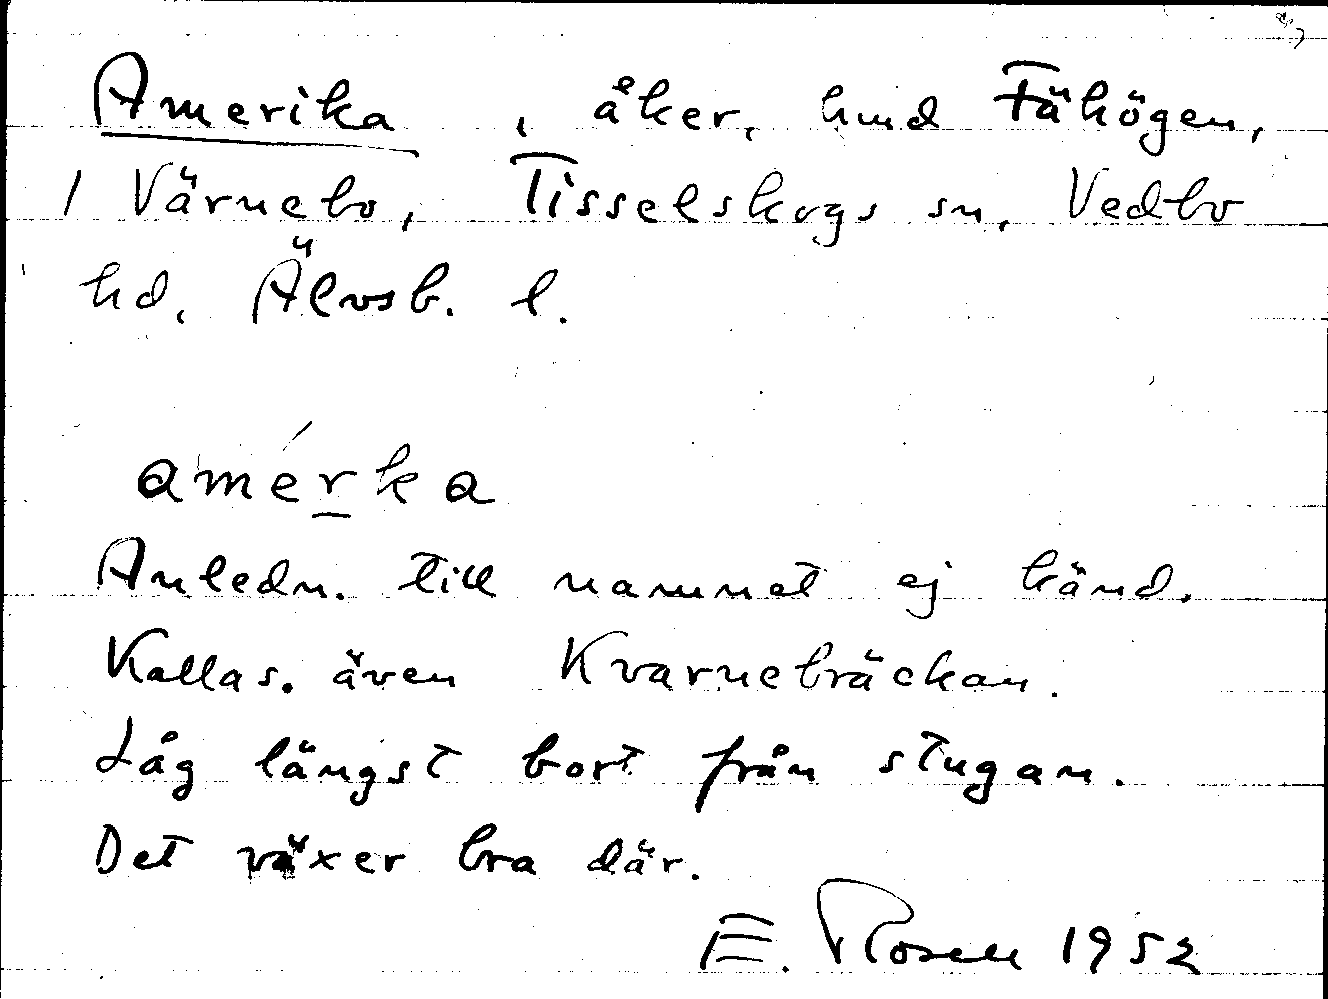 Amerika, åker, hmd Fähögen,
1 Värnebo, Tisselskogs sn, Vedbo
hd, Älvsb. l.
amérka
Anledn. till namnet ej känd.
Kallas även Kvarnebräckan.
Låg längst bort från stugan.
Det växer bra där.
E. Rosell 1952